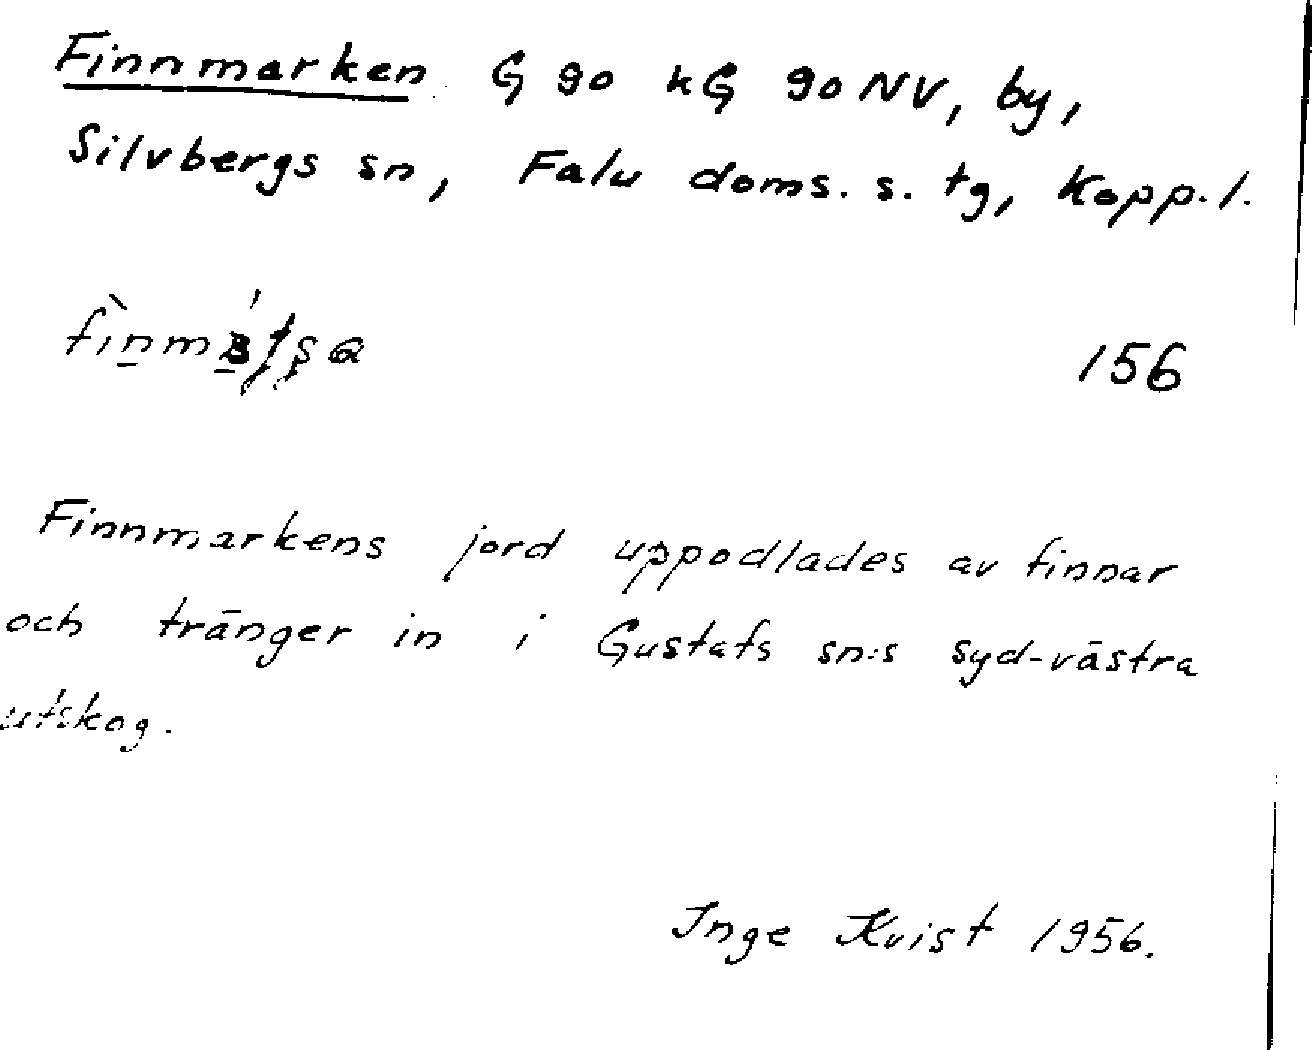 Finnmarken G 90 kG 90 NV, by,
Silvbergs sn, Falu doms. s. tg, Kopp. l.
156
Finnmarkens jord uppodlades av finnar
och tränger in i Gustafs sn:s syd-västra
utskog.
Inge Kvist 1956.